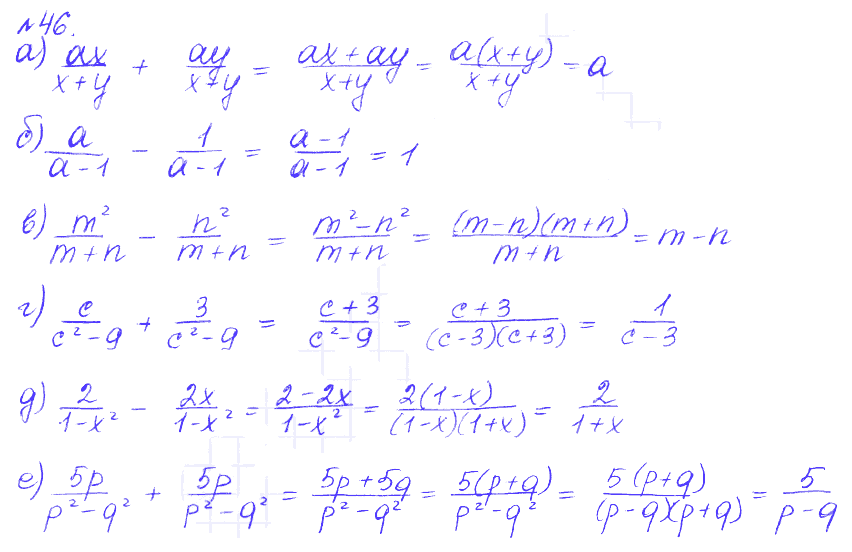 №46.
а) ax/(x+y) + ay/(x+y) = (ax+ay)/(x+y) = a(x+y)/(x+y) = a
б) a/(a-1) - 1/(a-1) = (a-1)/(a-1) = 1
в) m²/(m+n) - n²/(m+n) = (m²-n²)/(m+n) = (m-n)(m+n)/(m+n) = m-n
г) c/(c²-9) + 3/(c²-9) = (c+3)/(c²-9) = (c+3)/((c-3)(c+3)) = 1/(c-3)
д) 2/(1-x²) - 2x/(1-x²) = (2-2x)/(1-x²) = 2(1-x)/((1-x)(1+x)) = 2/(1+x)
е) 5p/(p²-q²) + 5p/(p²-q²) = (5p+5q)/(p²-q²) = 5(p+q)/(p²-q²) = 5(p+q)/((p-q)(p+q)) = 5/(p-q)